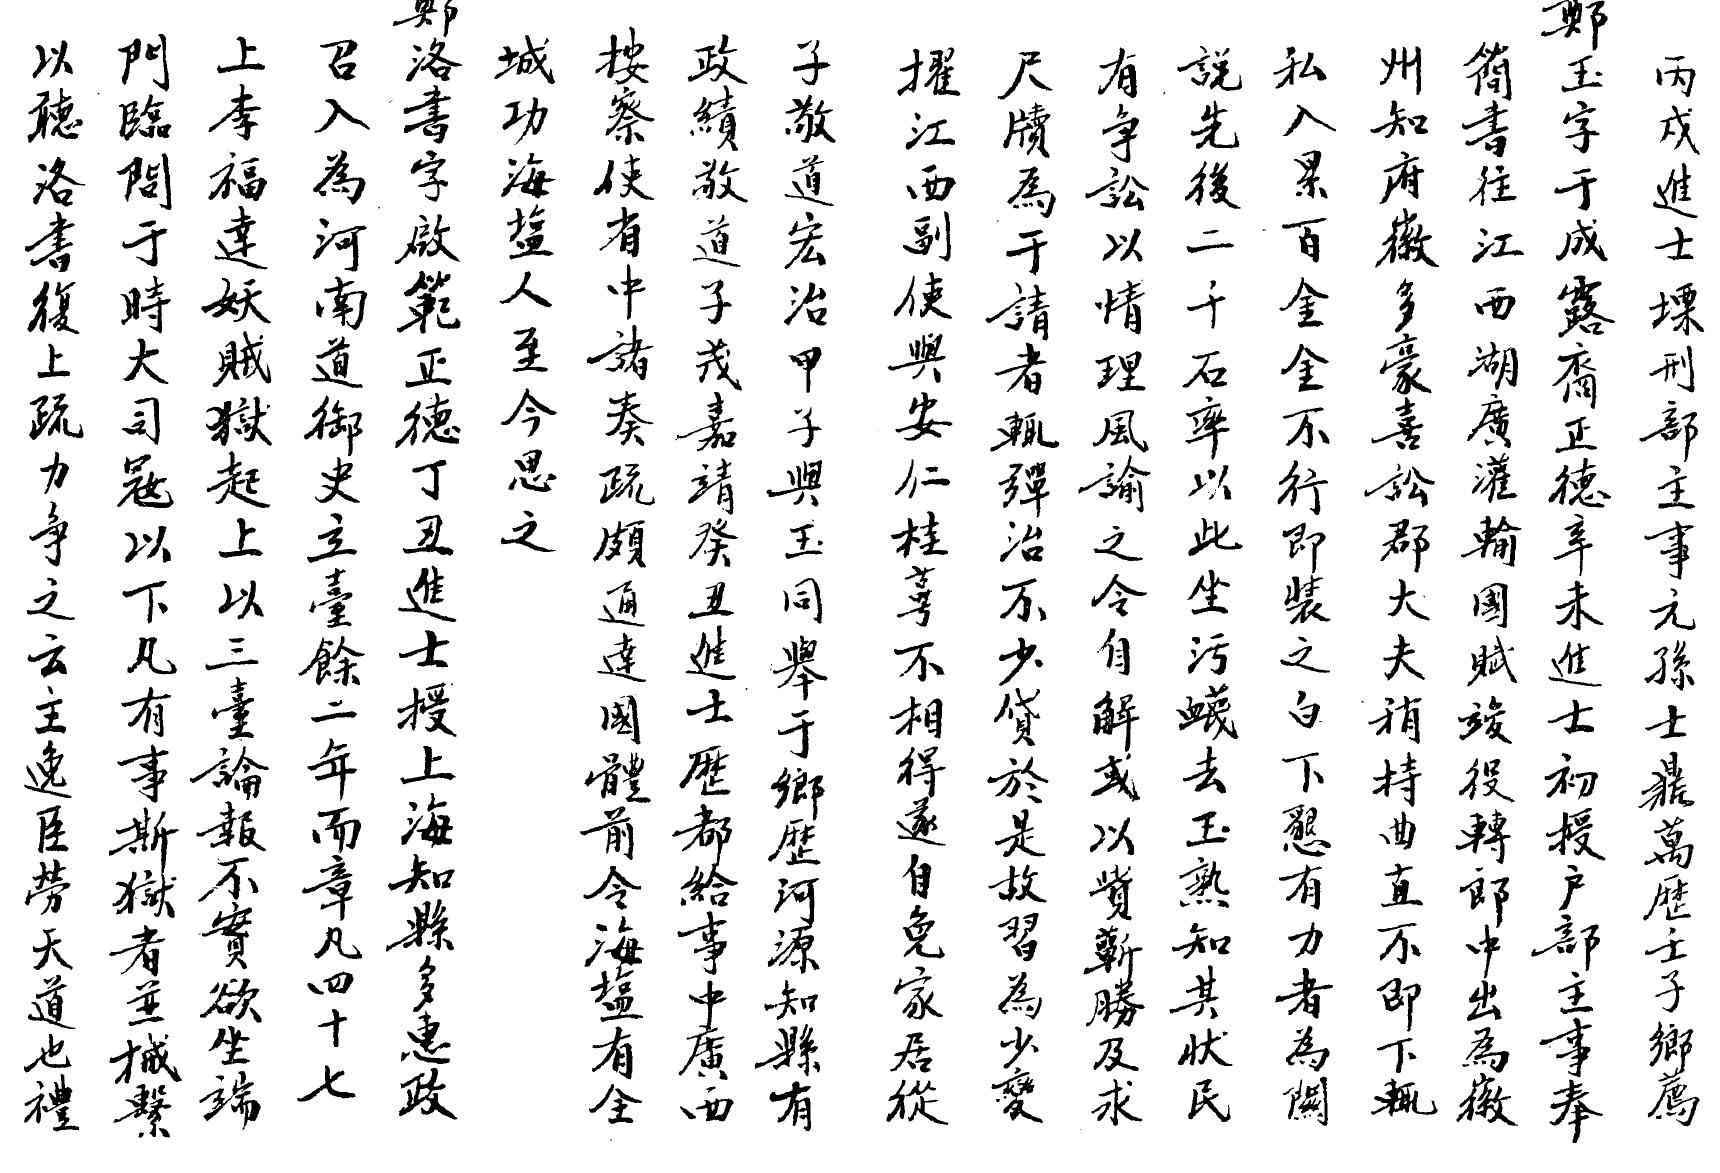 丙戌進士堞刑部主事元孫士鼎萬歷壬子鄉薦
鄭玉字于成露齋正德辛未進士初授户部主事奉
簡書往江西湖廣灌輸國賦竣役轉郎中出為徽
州知府徽多豪喜訟郡大夫稍持曲直不即下輒
私入累百金金不行即裝之白下懇有力者為關
説先後二千石率以此坐污衊去玉熟知其狀民
有争訟以情理風諭之令自解或以貲蘄勝及求
尺牘為干請者輒彈治不少貸於是故習為少變
擢江西副使與安仁桂萼不相得遂自免家居從
子敬道宏治甲子與玉同舉于鄉歷河源知縣有
政績敬道子茂嘉靖癸丑進士歷都給事中廣西
按察使省中諸奏疏頗通達國體前令海塩有全
城功海塩人至今思之
鄭洛書字啟範正德丁丑進士授上海知縣多惠政
召入為河南道御史立臺餘二年而章凡四十七
上李福達妖賊獄起上以三臺論報不實欲坐端
門臨問于時大司冦以下凡有事斯獄者並械繫
以聴洛書復上疏力争之云主逸臣勞天道也禮